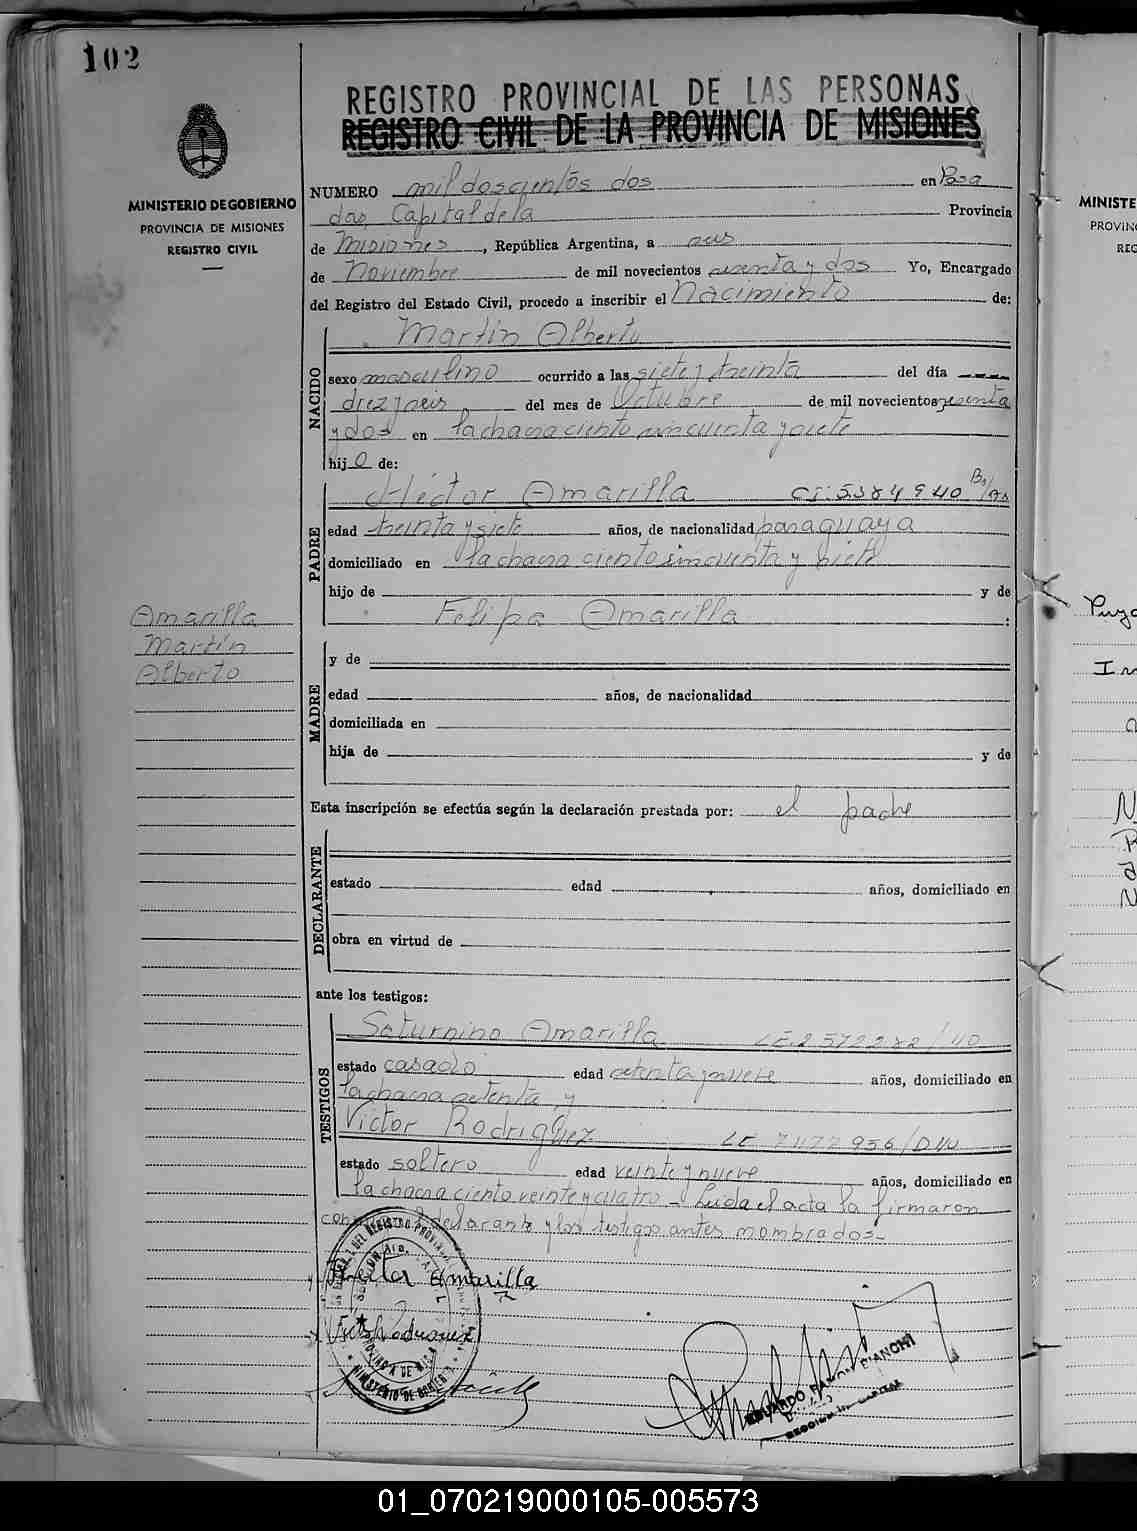 102
REGISTRO PROVINCIAL DE LAS PERSONAS
REGISTRO CIVIL DE LA PROVINCIA DE MISIONES
MINISTERIO DE GOBIERNO
PROVINCIA DE MISIONES
REGISTRO CIVIL
NUMERO mil doscientos dos en Posa
das, Capital de la Provincia
de Misiones, República Argentina, a seis
de Noviembre de mil novecientos sesenta y dos Yo, Encargado
del Registro del Estado Civil, procedo a inscribir el Nacimiento de:
NACIDO
Martín Alberto
sexo masculino ocurrido a las siete y treinta del día
diez y seis del mes de Octubre de mil novecientos sesenta
y dos en la chacra ciento cincuenta y siete
hijo de:
PADRE
Héctor Amarilla C.I. 5384940 Bs/As
edad treinta y siete años, de nacionalidad paraguaya
domiciliado en la chacra ciento cincuenta y siete
hijo de y de
Felipa Amarilla :
Amarilla
Martín
Alberto
MADRE
y de
edad años, de nacionalidad
domiciliada en
hija de y de
Esta inscripción se efectúa según la declaración prestada por: el padre
DECLARANTE
estado edad años, domiciliado en
obra en virtud de
ante los testigos:
TESTIGOS
Saturnino Amarilla L.E. 2572282/40
estado casado edad setenta y nueve años, domiciliado en
la chacra setenta y
Victor Rodriguez L.E. 7477956/DM
estado soltero edad veinte y nueve años, domiciliado en
la chacra ciento veinte y cuatro - Leida el acta la firmaron
declarante y los testigos antes nombrados-
Hector Amarilla
EDUARDO RAMON BIANCHI
MINISTERIO DE GOBIERNO
MINISTE
PROVIN
REG
01_070219000105-005573